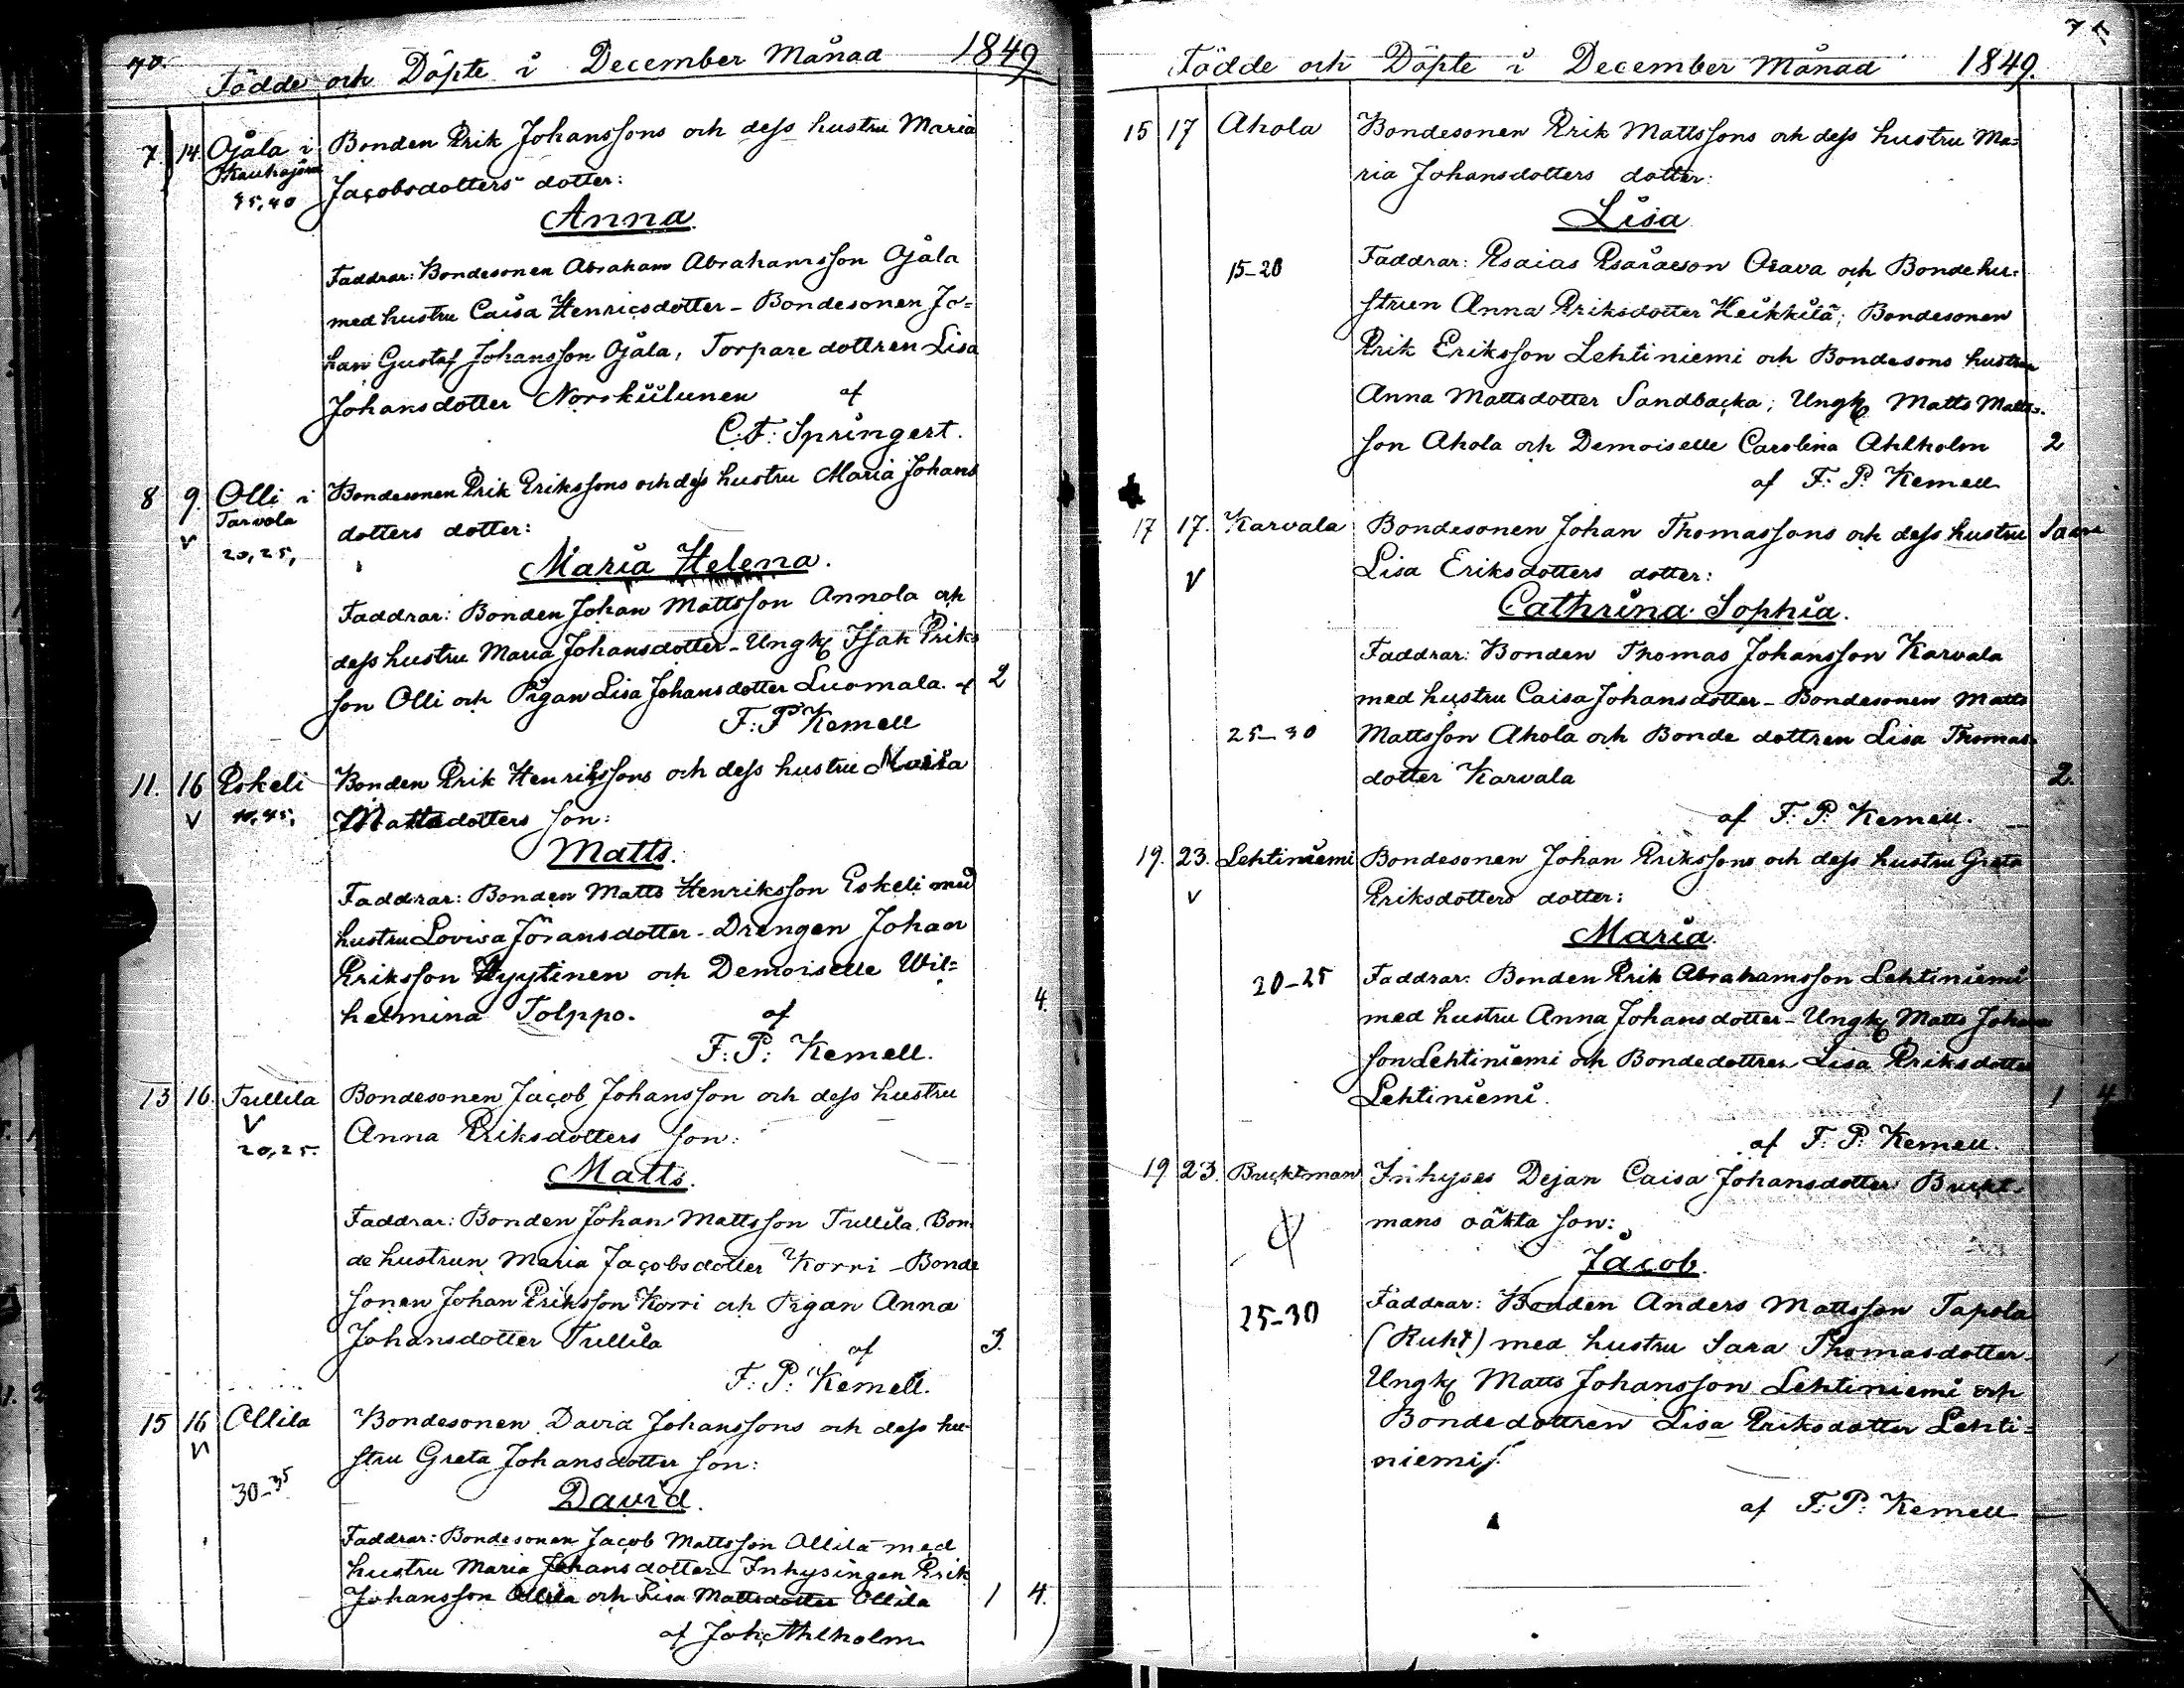 70.
Födde och Döpte i December Månad 1849
7. 14. Ojala i Bonden Erik Johanssons och dess hustru Maria
Kauhajärvi
35,40 Jacobsdotters dotter:
Anna
Faddrar: Bondesonen Abraham Abrahamsson Ojala
med hustru Caisa Henricsdotter - Bondesonen Jo=
han Gustaf Johansson Ojala, Torpare dottren Lisa
Johansdotter Norskiilunen af
C.F: Springert.
8 9. Olli i Bondesonen Erik Erikssons och dess hustru Maria Johans
Tarvola
v 20,25, dotters dotter:
Maria Helena.
Faddrar: Bonden Johan Mattsson Annola och
dess hustru Maria Johansdotter - Ungk Isak Eriks
son Olli och Pigan Lisa Johansdotter Luomala. af 2
F: P Kemell
11. 16 Eskeli Bonden Erik Henrikssons och dess hustru Maria
v 40,45, Mattsdotters son:
Matts.
Faddrar: Bonden Matts Henriksson Eskeli med
hustru Lovisa Göransdotter - Drengen Johan
Eriksson Hyytinen och Demoiselle Wil=
helmina Tolppo. af 4.
F: P: Kemell.
13 16. Tullila Bondesonen Jacob Johansson och dess hustru
v
20,25. Anna Eriksdotters son:
Matts.
Faddrar: Bonden Johan Mattsson Tullila, Bon
de hustrun Maria Jacobsdotter Korri - Bonde
sonen Johan Eriksson Korri och Pigan Anna
Johansdotter Tullila af 3.
F: P: Kemell.
15 16 Ollila Bondesonen David Johanssons och dess hu-
v
30-35 stru Greta Johansdotter son:
David.
Faddrar: Bondesonen Jacob Mattsson Ollila med
hustru Maria Johansdotter - Inhysingen Erik
Johansson Ollila och Lisa Mattsdotter Ollila 1 4.
af Joh. Ahlholm
71
Födde och Döpte i December Månad 1849.
15 17 Ahola Bondesonen Erik Mattssons och dess hustru Ma=
ria Johansdotters dotter:
Lisa
15-20 Faddrar: Esaias Esaiaeson Orava och Bonde hu=
strun Anna Eriksdotter Heikkilä; Bondesonen
Erik Eriksson Lehtiniemi och Bondesons hustrun
Anna Mattsdotter Sandbacka; Ungk Matts Matts=
son Ahola och Demoiselle Carolina Ahlholm 2
af F. P. Kemell
17 17. Karvala Bondesonen Johan Thomassons och dess hustru
v Lisa Eriksdotters dotter:
Cathrina Sophia.
Faddrar: Bonden Thomas Johansson Karvala
med hustru Caisa Johansdotter - Bondesonen Matts
25-30 Mattsson Ahola och Bonde dottren Lisa Thomas-
dotter Karvala 2.
af F. P. Kemell.
19. 23. Lehtiniemi Bondesonen Johan Erikssons och dess hustru Greta
v Eriksdotters dotter:
Maria.
20-25 Faddrar: Bonden Erik Abrahamsson Lehtiniemi
med hustru Anna Johansdotter - Ungk Matts Johans
son Lehtiniemi och Bondedottren Lisa Eriksdotter
Lehtiniemi. 1 4
af F. P. Kemell.
19 23. Bucktman Inhyses Dejan Caisa Johansdotter Buckt-
mans oäkta son:
Jacob.
25-30 Faddrar: Bonden Anders Mattsson Tapola
(Ruht) med hustru Sara Thomasdotter
Ungk Matts Johansson Lehtiniemi och
Bondedottren Lisa Eriksdotter Lehti=
niemi
af F: P: Kemell